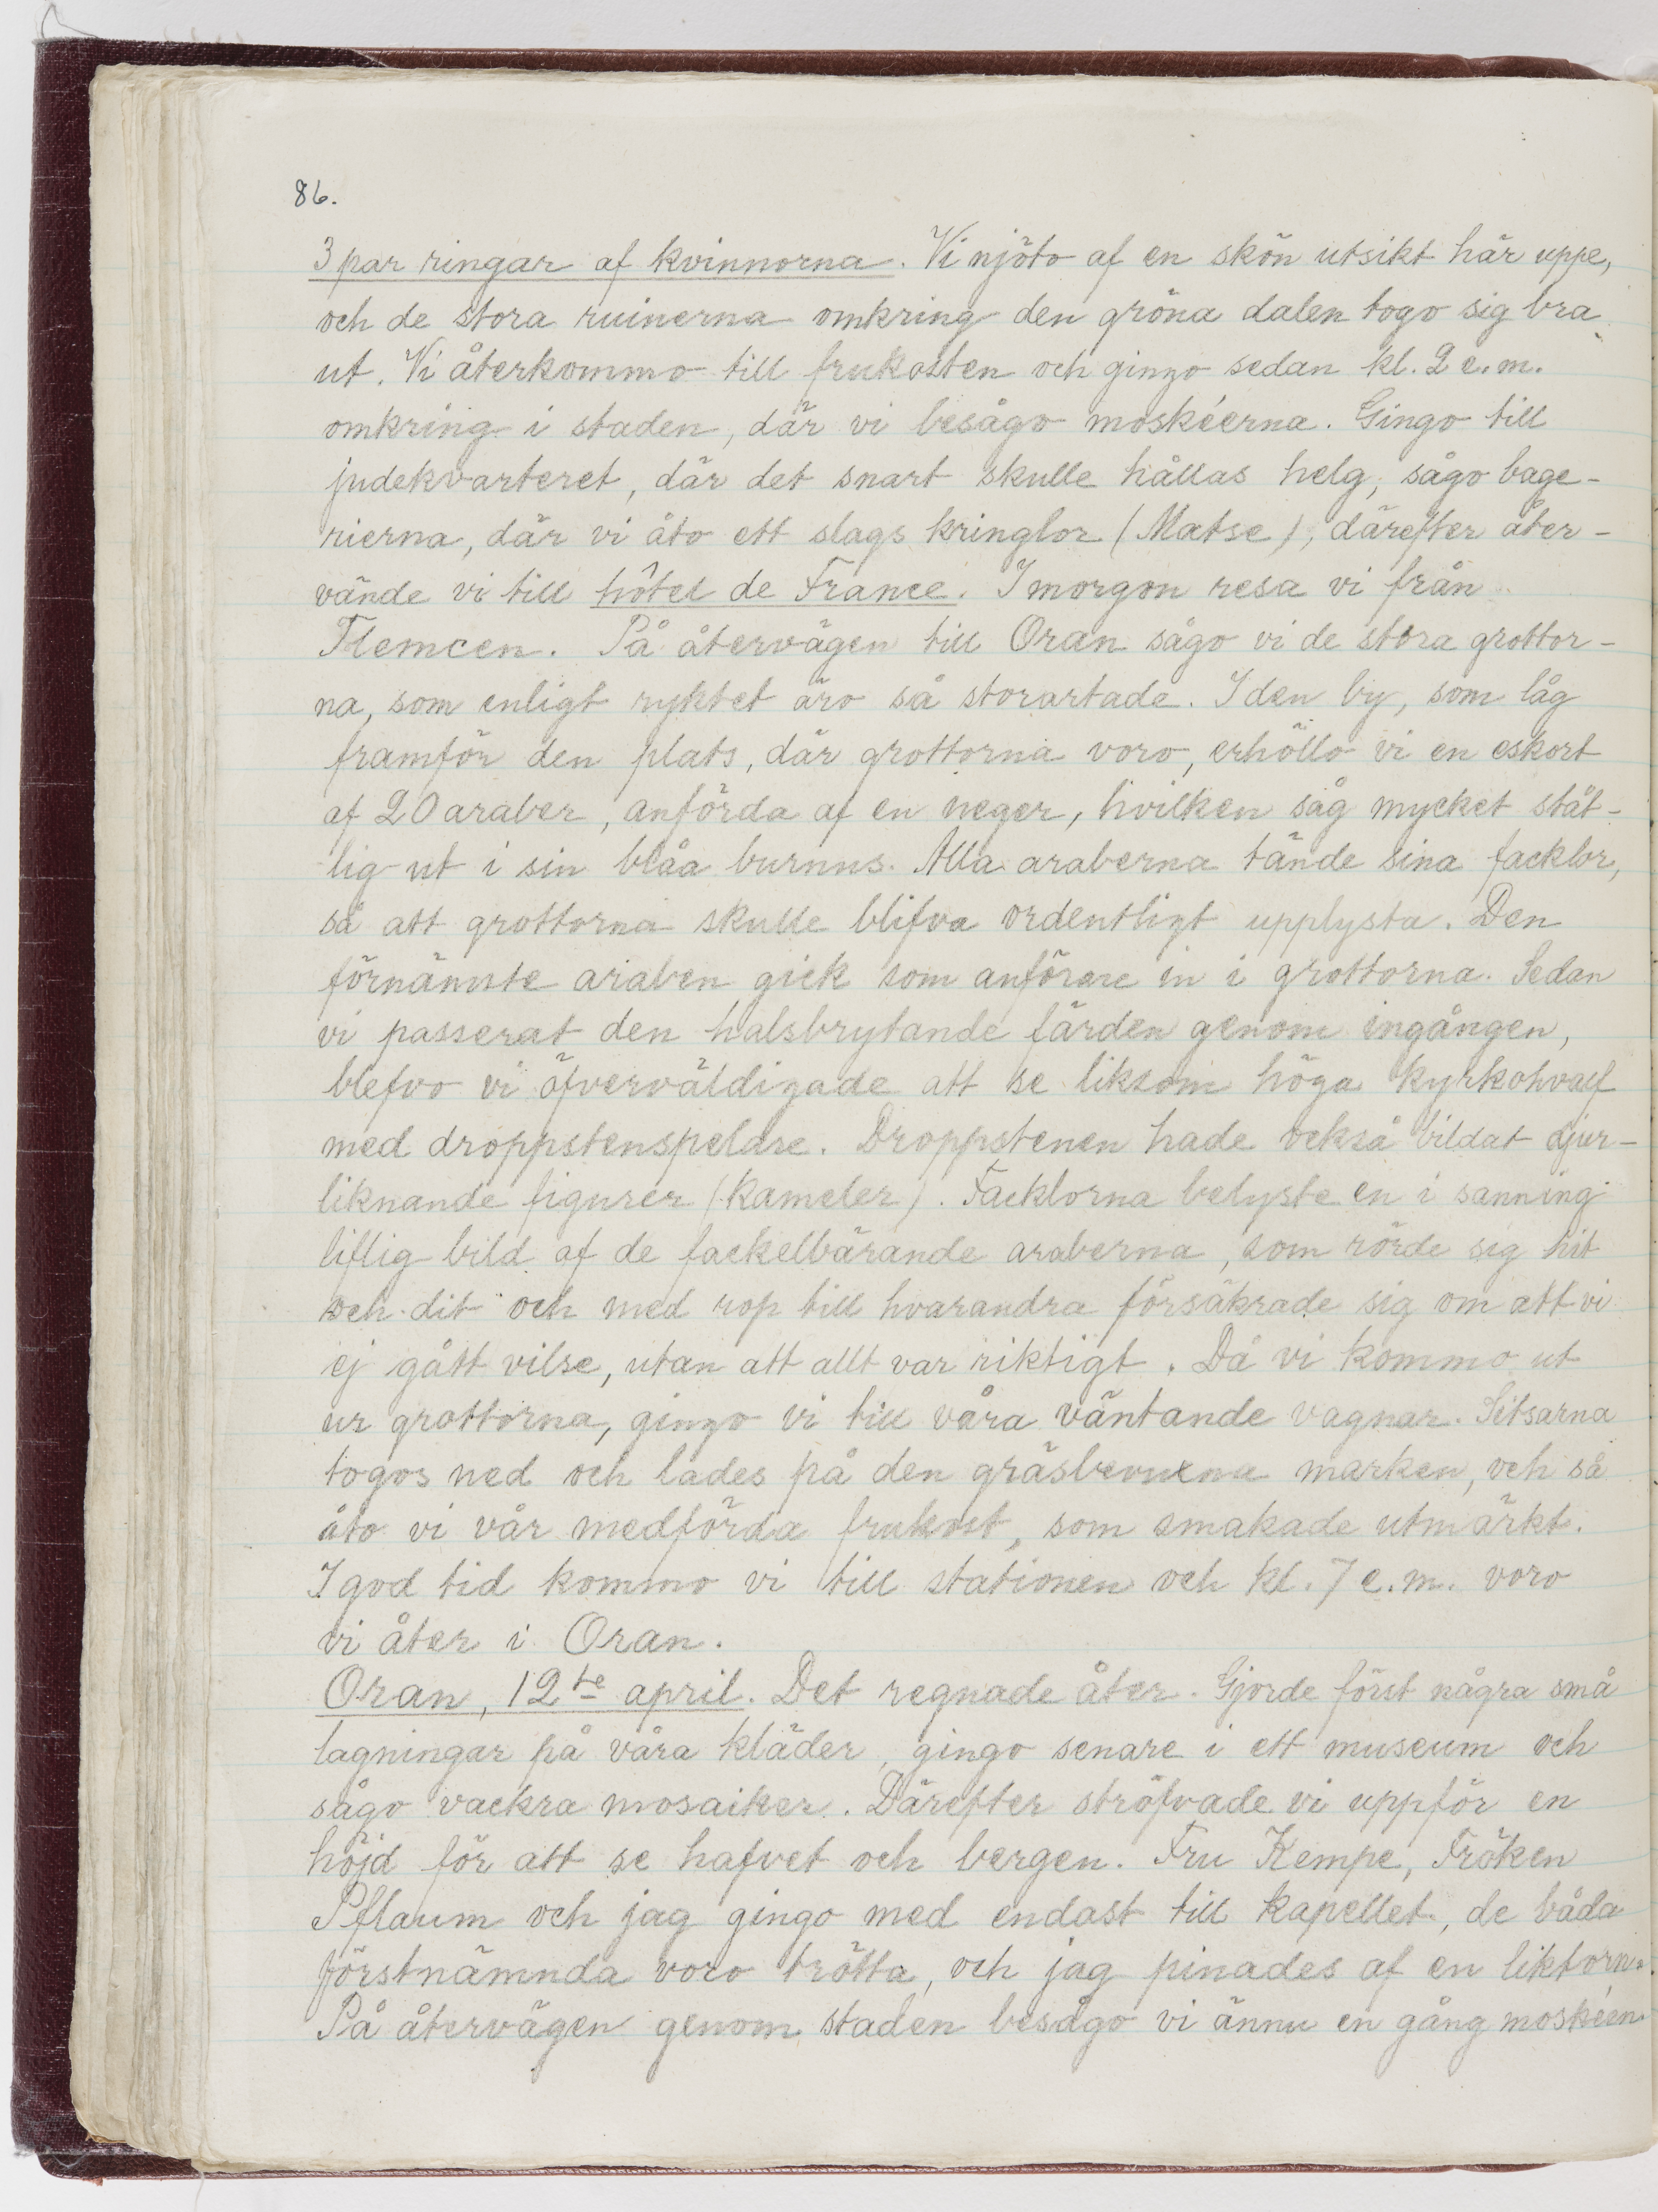 86.
3 par ringar af kvinnorna. Vi njöto af en skön utsikt här uppe,
och de stora ruinerna omkring den gröna dalen togo sig bra
ut. Vi återkommo till frukosten och gingo sedan kl. 2 e.m.
omkring i staden, där vi besågo moskéerna. Gingo till
judekvarteret, där det snart skulle hållas helg, sågo bage-
rierna, där vi åto ett slags kringlor (Matse), därefter åter-
vände vi till hôtel de France. I morgon resa vi från
Tlemcen. På återvägen till Oran sågo vi de stora grottor-
na, som enligt ryktet äro så storartade. I den by, som låg
framför den plats, där grottorna voro, erhöllo vi en eskort
af 20 araber, anförda af en neger, hvilken såg mycket ståt-
lig ut i sin blåa burnus. Alla araberna tände sina facklor,
så att grottorna skulle blifva ordentligt upplysta. Den
förnämste araben gick som anförare in i grottorna. Sedan
vi passerat den halsbrytande färden genom ingången,
blefvo vi öfverväldigade att se liksom höga kyrkohvalf
med droppstenspelare. Droppstenen hade också bildat djur-
liknande figurer (kameler). Facklorna belyste en i sanning
liflig bild af de fackelbärande araberna, som rörde sig hit
och dit och med rop till hvarandra försäkrade sig om att vi
ej gått vilse, utan att allt var riktigt. Då vi kommo ut
ur grottorna, gingo vi till våra väntande vagnar. Sitsarna
togos ned och lades på den gräsbevuxna marken, och så
åto vi vår medförda frukost, som smakade utmärkt.
I god tid kommo vi till stationen och kl. 7 e.m. voro
vi åter i Oran.
Oran, 12te april. Det regnade åter. Gjorde först några små
lagningar på våra kläder, gingo senare i ett museum och
sågo vackra mosaiker. Därefter ströfvade vi uppför en
höjd för att se hafvet och bergen. Fru Kempe, Fröken
Pflaum och jag gingo med endast till kapellet, de båda
förstnämnda voro trötta, och jag pinades af en liktorn.
På återvägen genom staden besågo vi ännu en gång moskéen